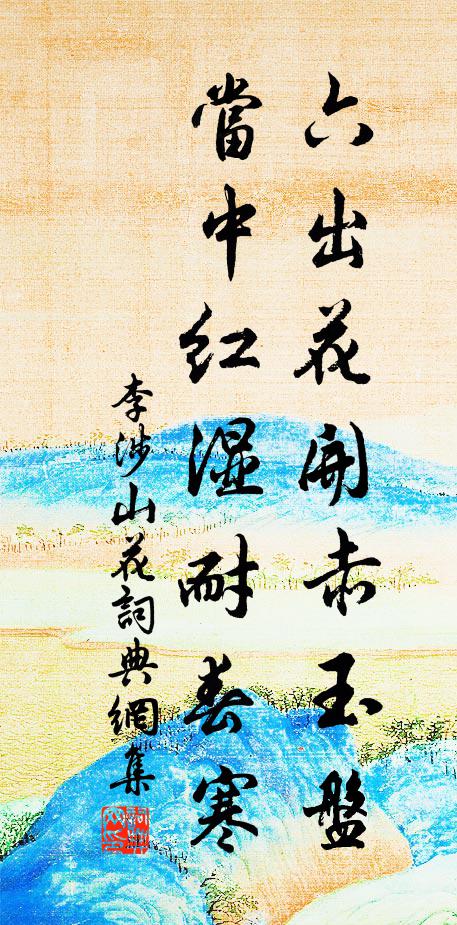 六出花開赤玉盤
當中紅湿耐春寒
李涉山花詞典網集